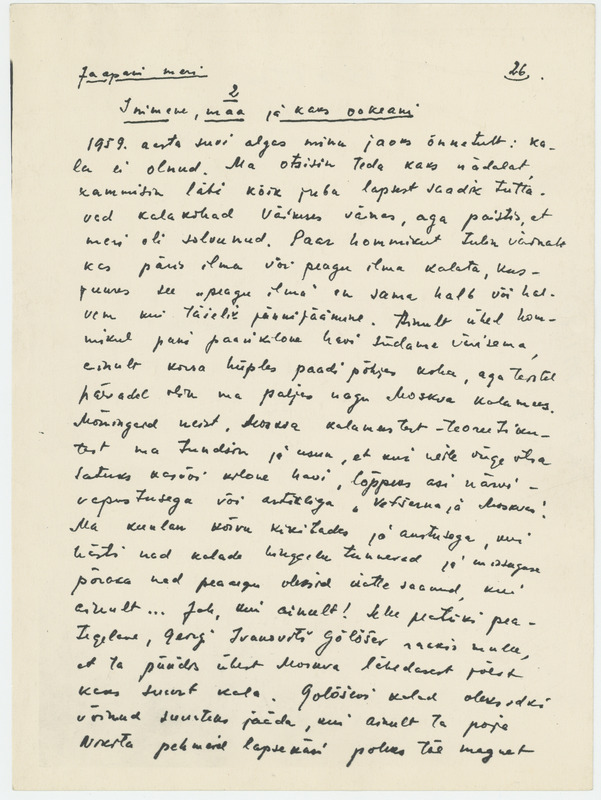 Jaapani meri
26.
2
Inimene, maa ja kaks ookeani
1959. aasta suvi algas minu jaoks õnnetult: ka-
la ei olnud. Ma otsisin teda kaks nädalat,
kammisin läbi kõik juba lapsest saadik tutta-
vad kalakohad Väikeses väinas, aga paistis, et
meri oli solvunud. Paar hommikut tulin värvale
kas päris ilma või peagu ilma kalata, kus-
juures see „peagu ilma" on sama halb või hal-
vem kui täielik pännijäämine. Ainult ühel hom-
mikul pani paarikilone havi südame värisema,
ainult korra hüples paadi põhjas koha, aga teistel
päevadel olin ma paljas nagu Moskva kalamees.
Mõningaid neist, Moskva kalamestest-teoreetiku-
test ma tundsin ja usun, et kui neile õnge otsa
satuks kasvõi kilone havi, lõppeks asi närvi-
vapustusega või artikliga „Vetšernaja Moskvas".
Ma kuulan kõrvu kikitades ja austusega, kui
hästi nad kalade hingeelu tunnevad ja missuguse
põraka nad peaaegu oleksid kätte saanud, kui
ainult... Jah, kui ainult! Mu peatüki pea-
tegelane, Georgi Ivanovitš Gološev rääkis mulle,
et ta püüdis ühest Moskva lähedasest jõest
kaks suurt kala. Gološevi kalad oleksidki
võinud suurteks jääda, kui ainult ta poja
Nikita pehmeid lapsekäsi poleks täis magnet